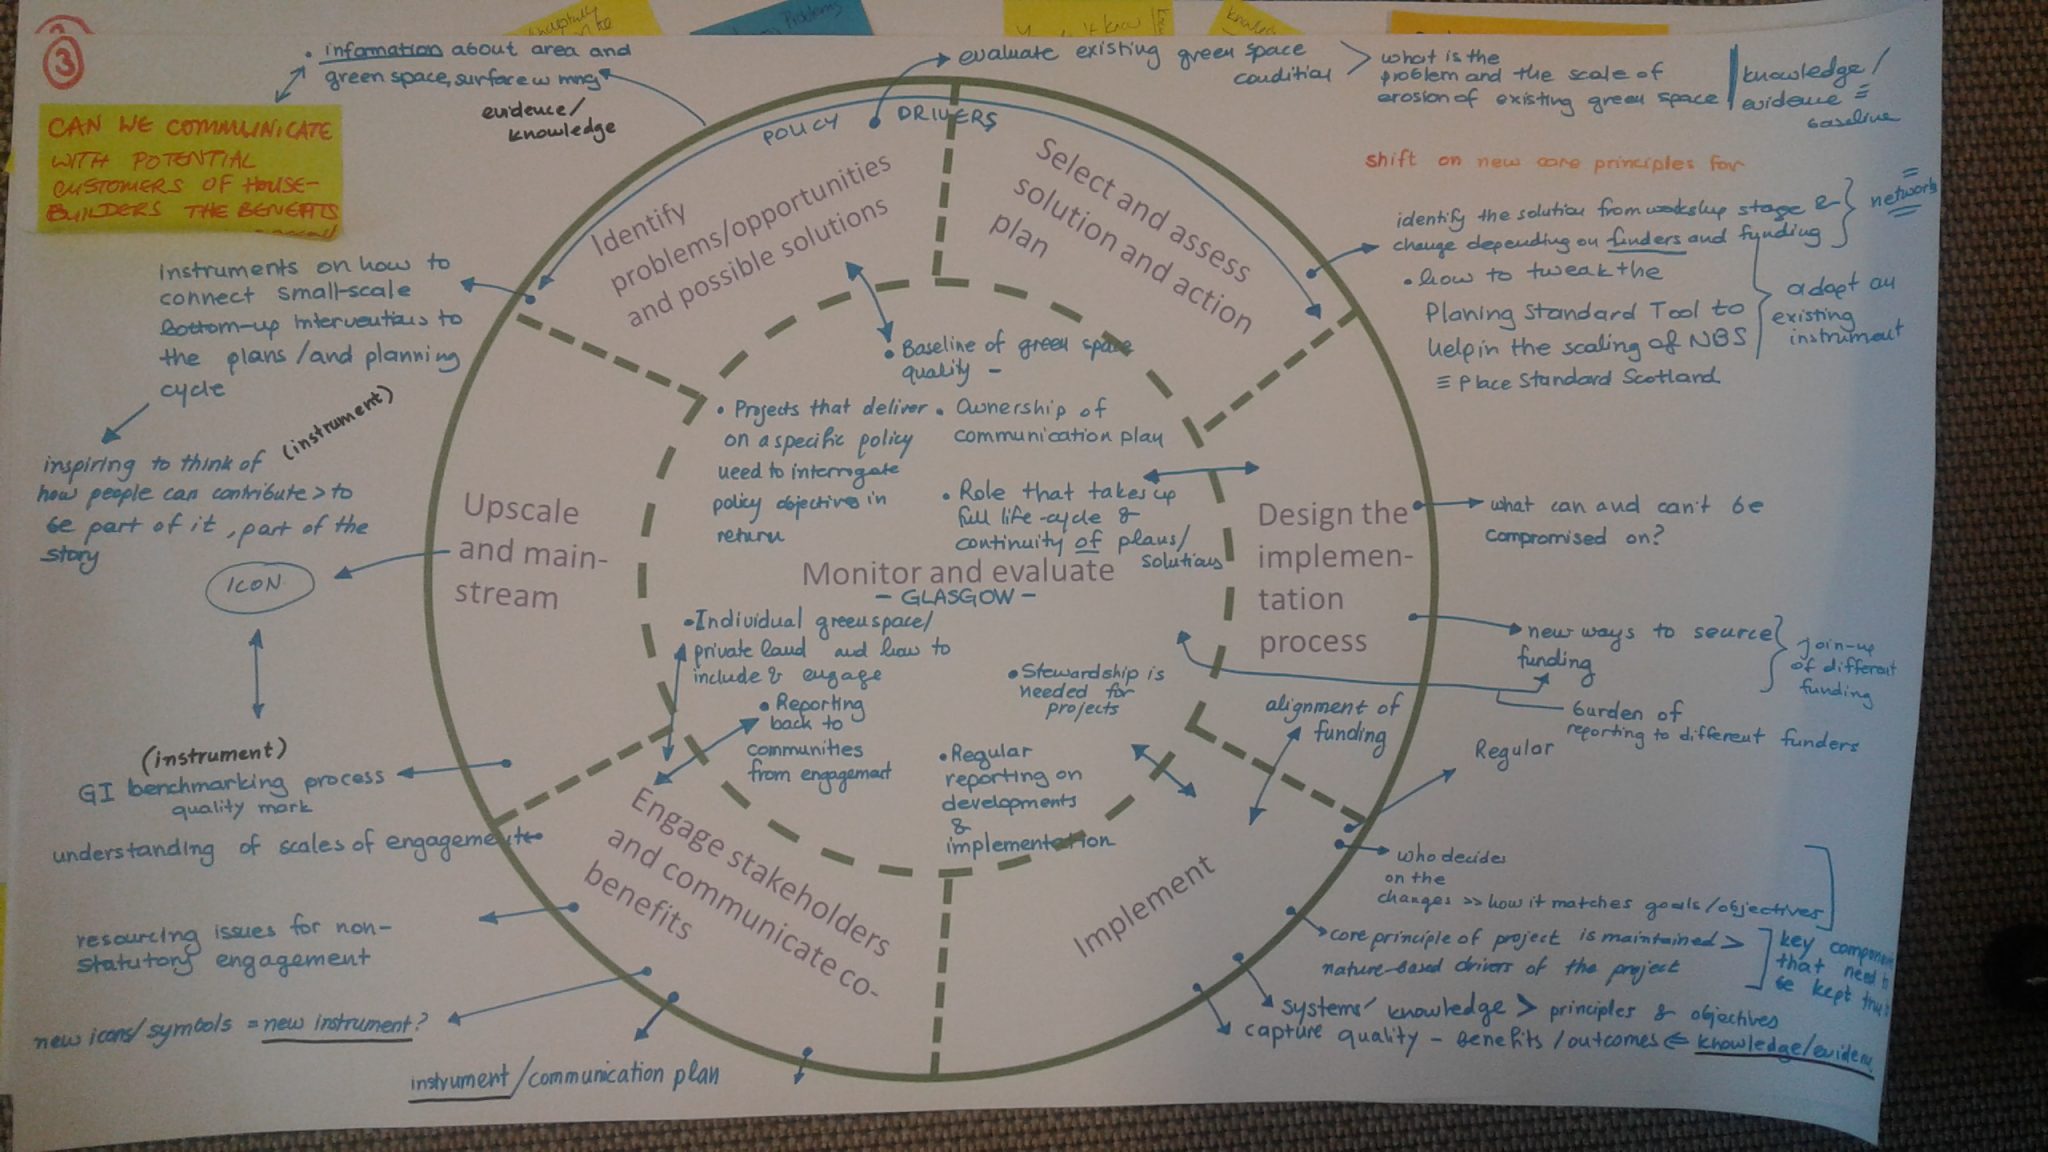 3
• information about area and
green space, surface w mng
evidence/
knowledge
CAN WE COMMUNICATE
WITH POTENTIAL
CUSTOMERS OF HOUSE-
BUILDERS THE BENEFITS
Problems
evaluate existing green space
condition >
what is the
problem and the scale of
erosion of existing green space
knowledge/
evidence =
baseline
POLICY DRIVERS
shift on new core principles for
identify the solution from workshop stage &
change depending on funders and funding
network
• how to tweak the
Planing Standard Tool to
help in the scaling of NBS
≡ Place Standard Scotland
adapt an
existing
instrument
Identify
problems/opportunities
and possible solutions
Select and assess
solution and action
plan
instruments on how to
connect small-scale
bottom-up interventions to
the plans/and planning
cycle
(instrument)
inspiring to think of
how people can contribute > to
be part of it, part of the
story
ICON
• Baseline of green space
quality -
• Projects that deliver
on a specific policy
need to interrogate
policy objectives in
return
• Ownership of
communication plan
• Role that takes up
full life-cycle &
continuity of plans/
solutions
Monitor and evaluate
- GLASGOW -
Upscale
and main-
stream
Design the
implemen-
tation
process
what can and can't be
compromised on?
new ways to source
funding
join-up
of different
funding
burden of
reporting to different funders
• Individual greenspace/
private land and how to
include & engage
• Reporting
back to
communities
from engagement
• Stewardship is
needed for
projects
• Regular
reporting on
developments
&
implementation
alignment of
funding
Regular
(instrument)
GI benchmarking process
quality mark
understanding of scales of engagement
resourcing issues for non-
statutory engagement
new icons/symbols = new instrument?
instrument/communication plan
Engage stakeholders
and communicate co-
benefits
Implement
who decides
on the
changes >> how it matches goals/objectives
core principle of project is maintained >
nature-based drivers of the project
key
that need to
be kept
systems' knowledge > principles & objectives
capture quality - benefits/outcomes ⇐ knowledge/evidenc